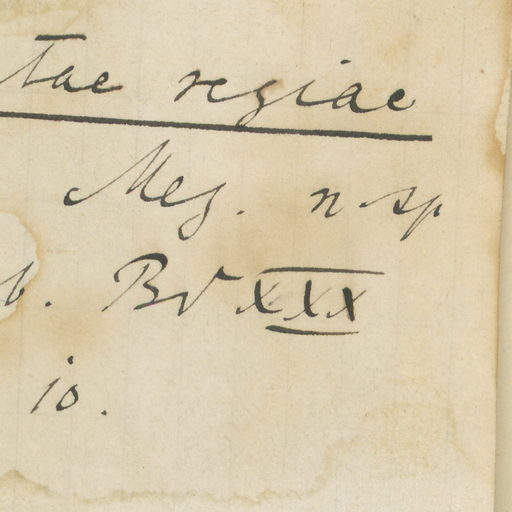 tae regiae
Meg. n. sp
b. Bd XXX
io.